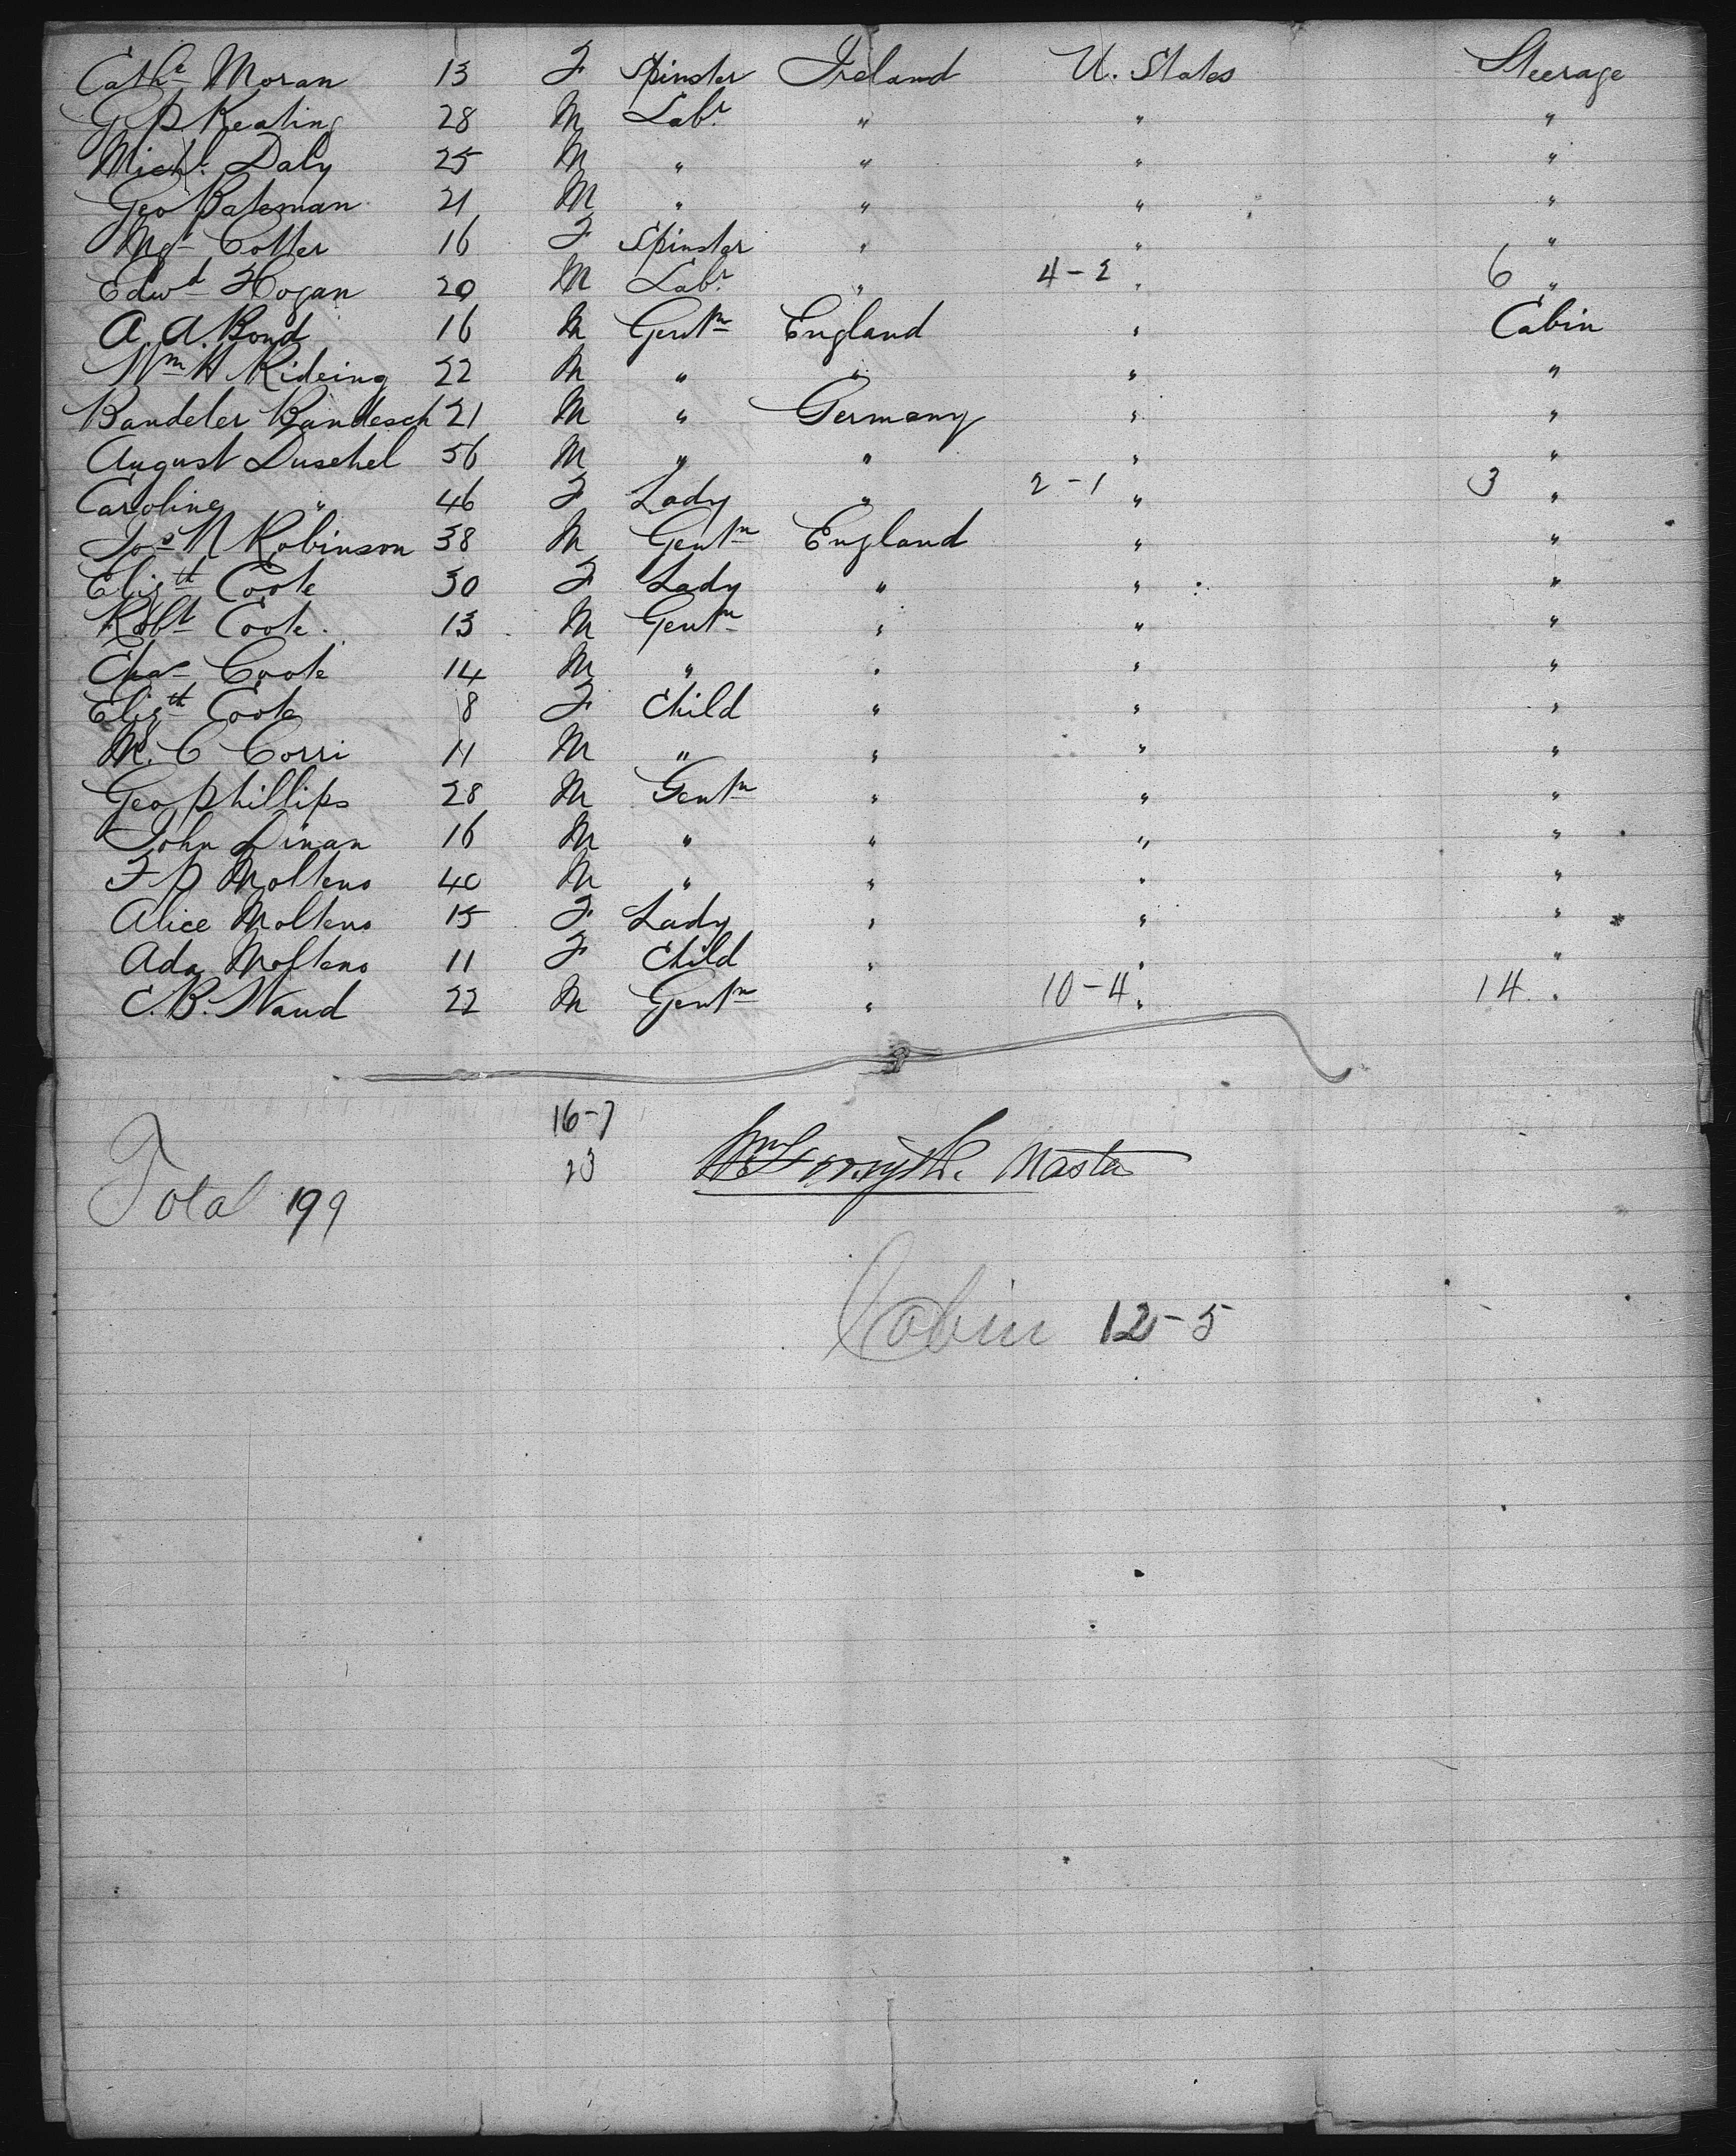 Cathe Moran 13 F Spinster Ireland U. States Steerage
G P Keating 28 M Labr " " "
Michl. Daly 25 M " " " "
Geo Bateman 21 M " " " "
Mgt Cotter 16 F Spinster " " "
Edwd Hogan 20 M Labr " 4-2 " 6 "
A. A. Bond 16 M Gentn England " Cabin
Wm H Rideing 22 M " " " "
Bandeler Bandesch 21 M " Germany " "
August Duschel 56 M " " " "
Caroline " 46 F Lady " 2-1 " 3 "
Jos N Robinson 38 M Gentn England " "
Elizth Coote 30 F Lady " " "
Robt Coote. 13 M Gentn " " "
Chas Coote 14 M " " " "
Elizth Coote 8 F Child " " "
M. C Corri 11 M " " " "
Geo Phillips 28 M Gentn " " "
John Dinan 16 M " " " "
F P Molteno 40 M " " " "
Alice Molteno 15 F Lady " " "
Ada Molteno 11 F Child " " "
C. B. Waud 22 M Gentn " 10-4 " 14 "
16-7
Wm Forsyth. Master
23
Total 199
Cabin 12-5